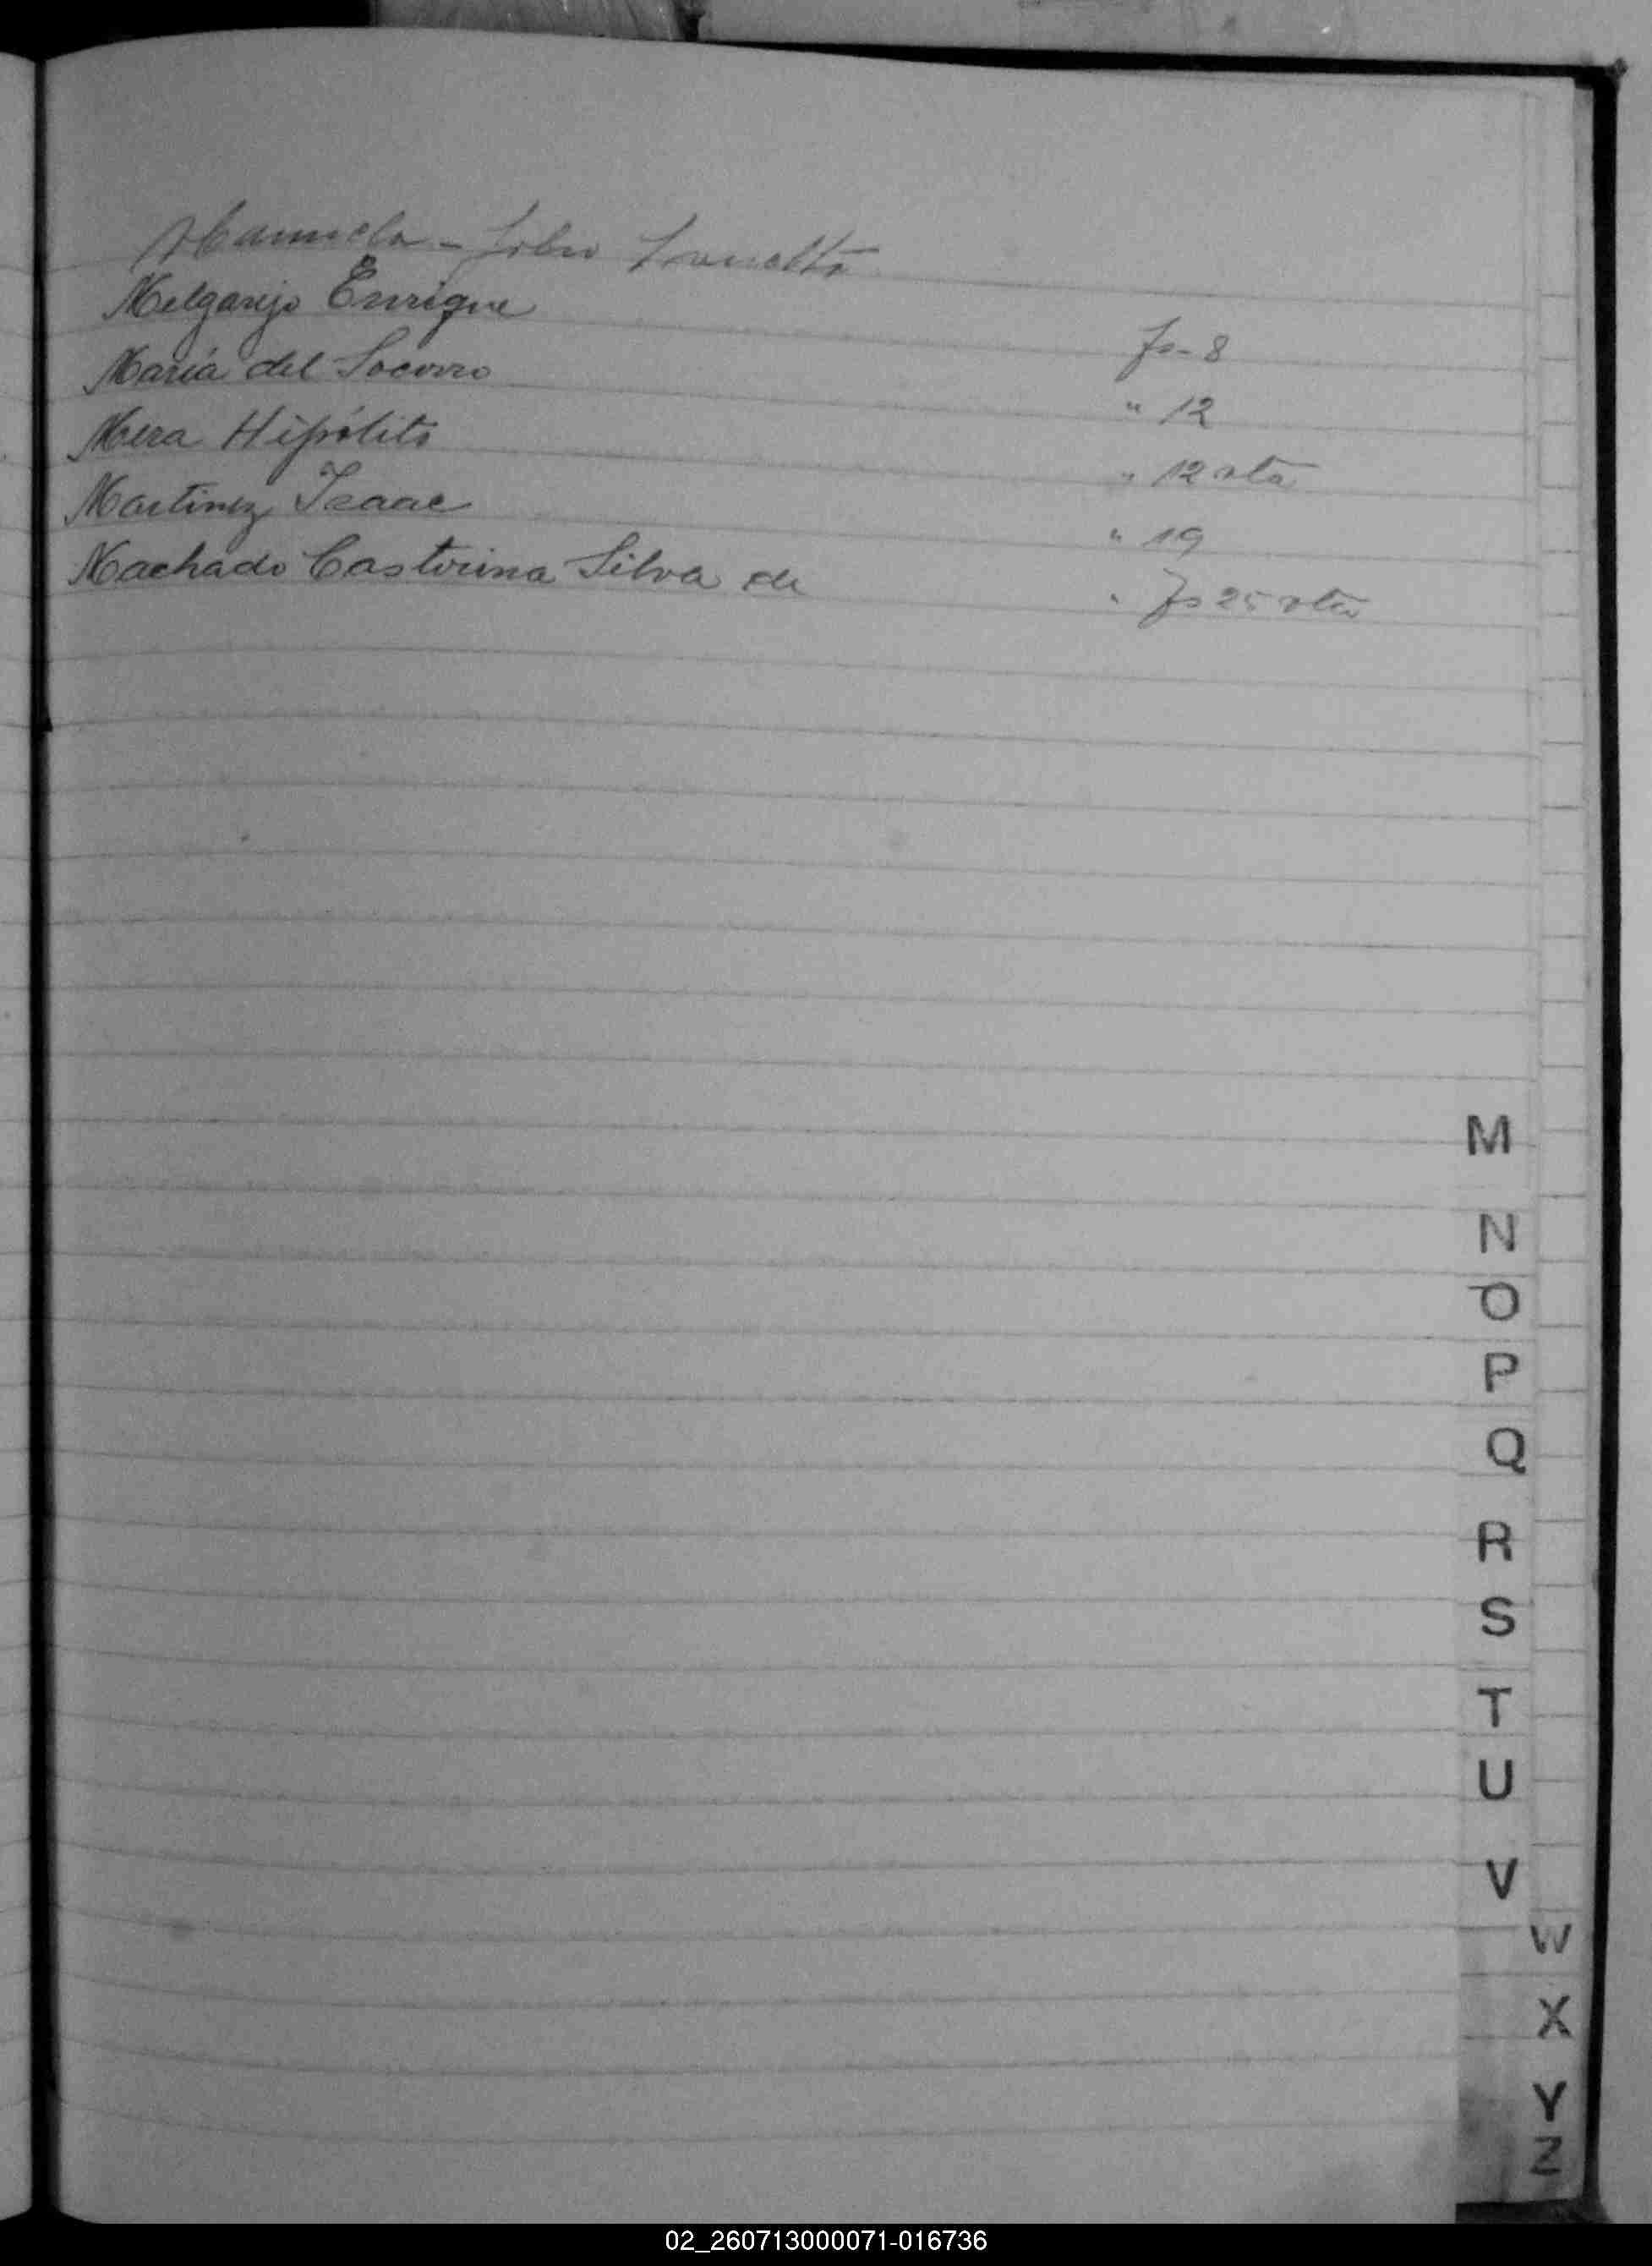 Manuela -
Melgarejo Enrique fs- 8
María del Socorro " 12
Mera Hipólito " 12 vta
Martinez Isaac " 19
Machado Castorina Silva de " fs 25 vta
M
N
O
P
Q
R
S
T
U
V
W
X
Y
Z
02_260713000071-016736